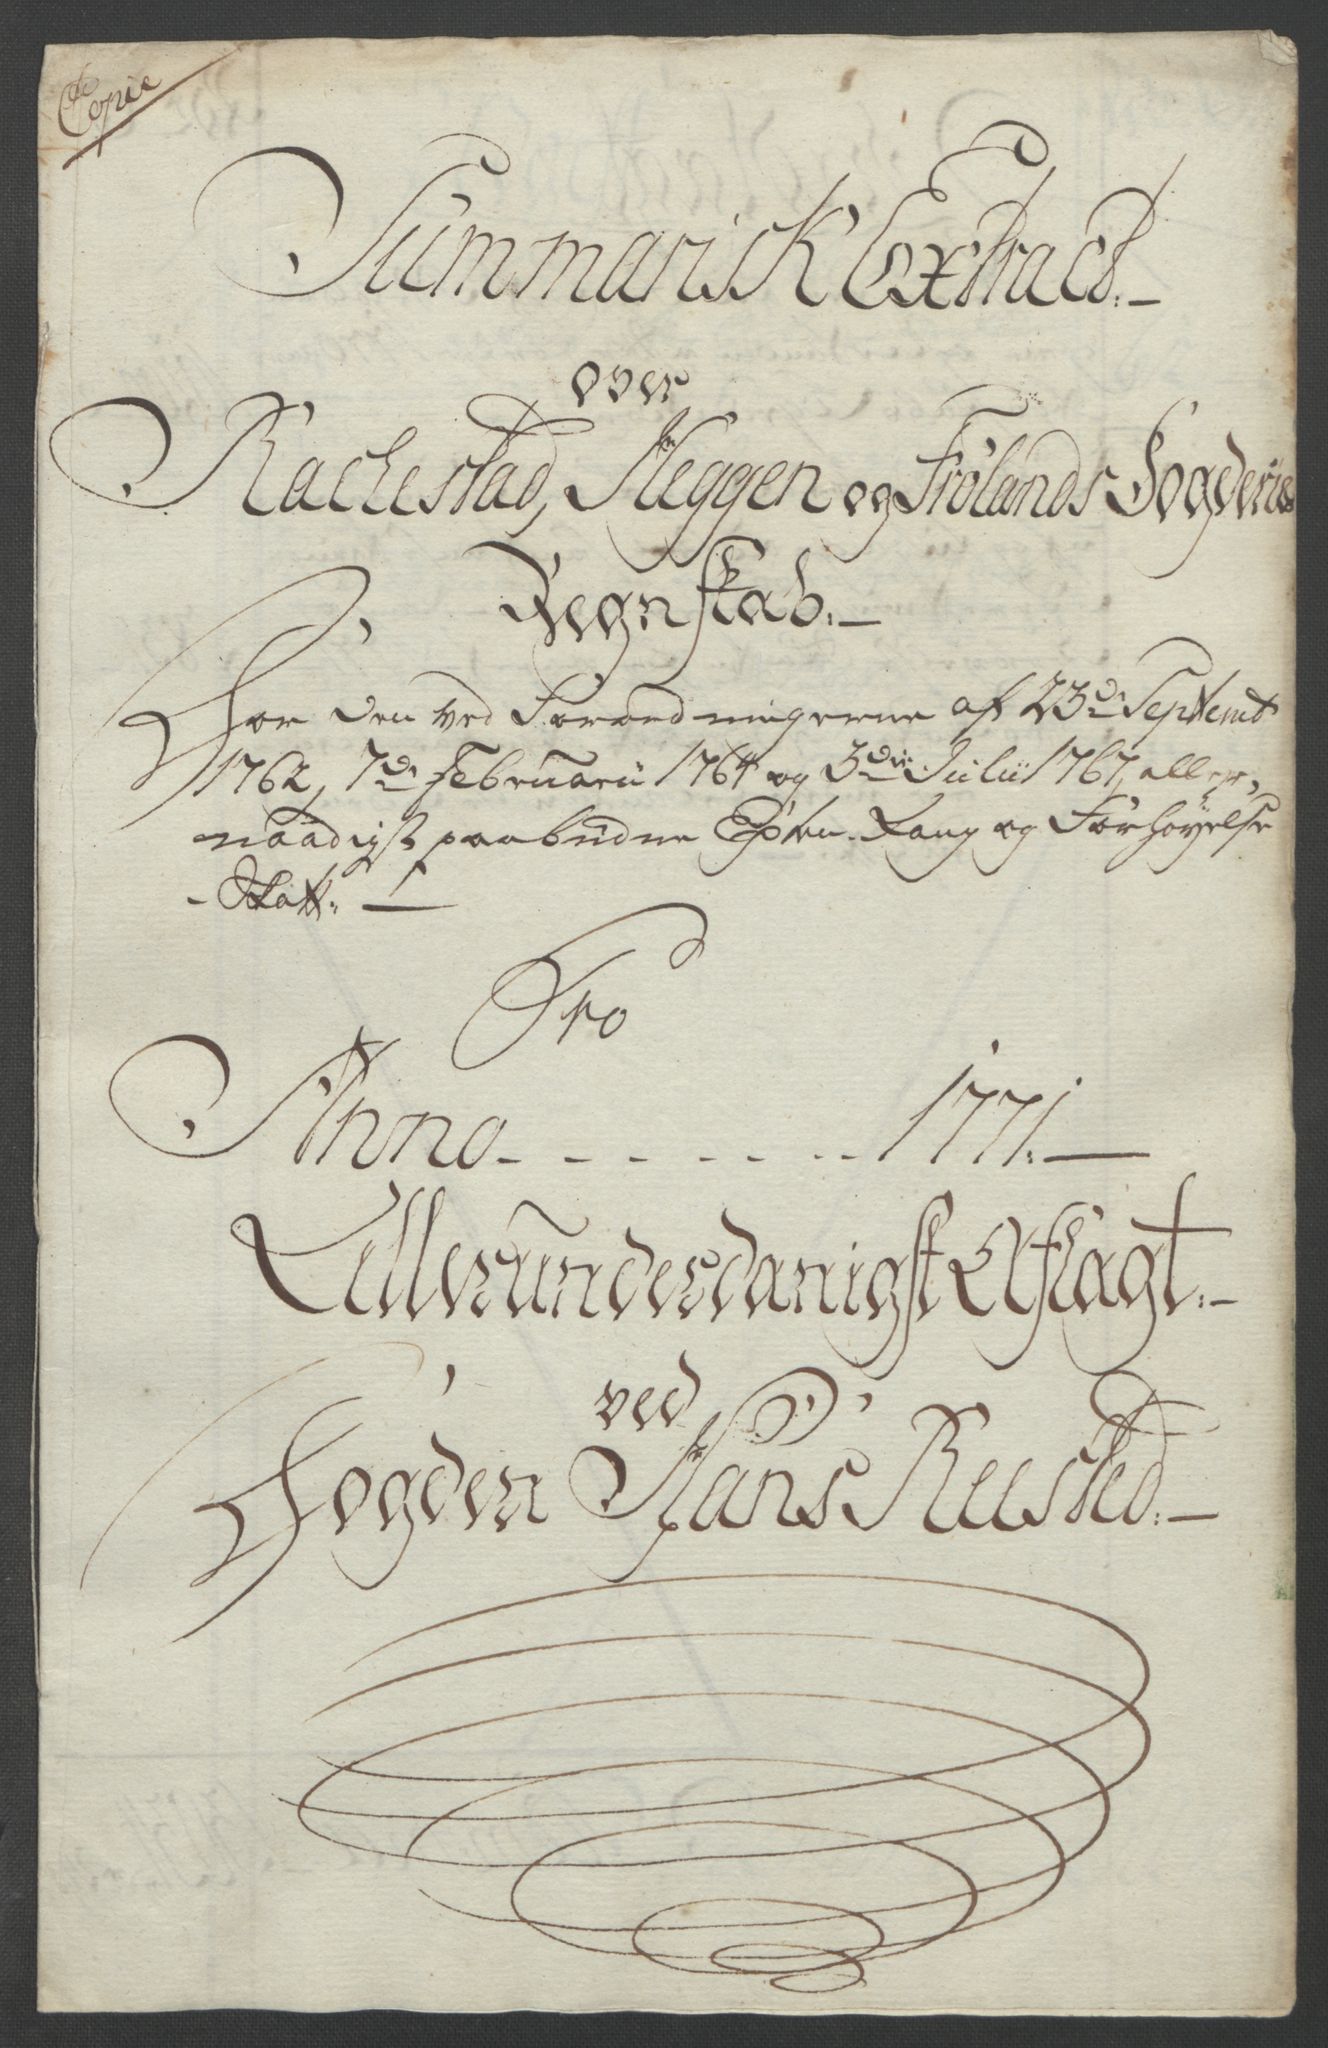 Copie
Summarisk Extract.
over
Rachestad, Heggen og Frölands Fogderies
Regnskab.
For den ved Forordningerne af 23de Septembr
1762, 7de Februarii 1764 og 3die Julii 1767, aller,
naadigst paabudne Extra. Rang og Forhøyelse
- Skatt.
Pro
Anno - - - - - - - 1771.
Allerunderdanigst Aflagt.
ved
Fogden Hans Reusted.